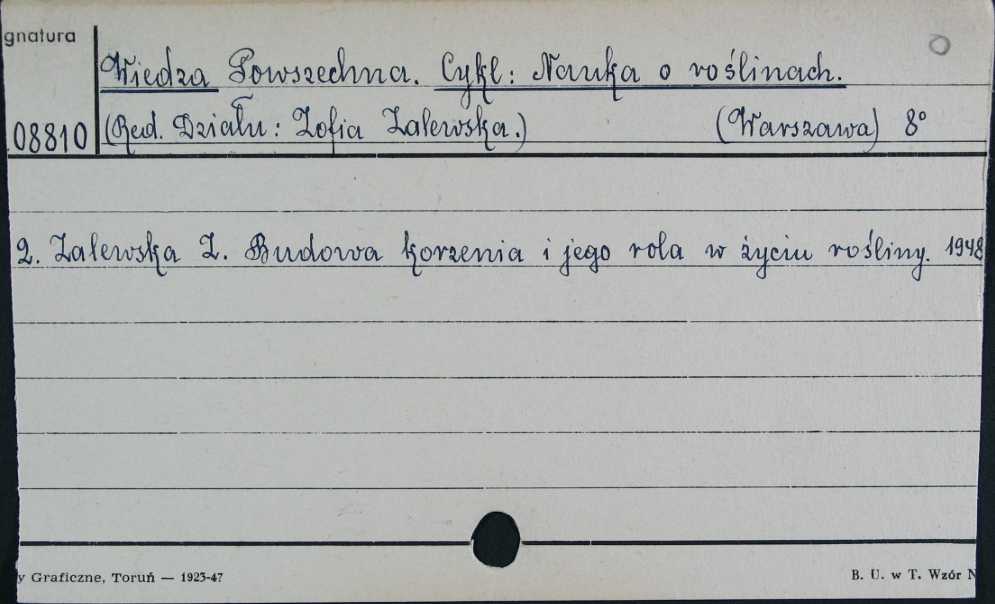 gnatura
Wiedza Powszechna. Cykl: Nauka o roślinach.
08810 (Red. Działu: Zofia Zalewska.) (Warszawa) 8°
2. Zalewska Z. Budowa korzenia i jego rola w życiu rośliny. 1948
y Graficzne, Toruń — 1923-47 B. U. w T. Wzór N